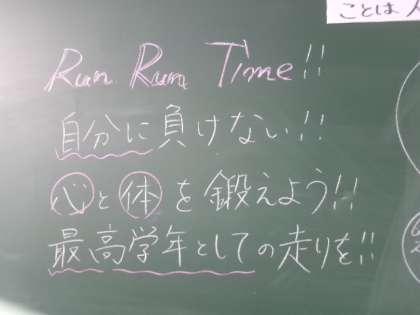 ことは
Run Run Time!!
自分に負けない!!
心と体を鍛えよう!!
最高学年としての走りを!!